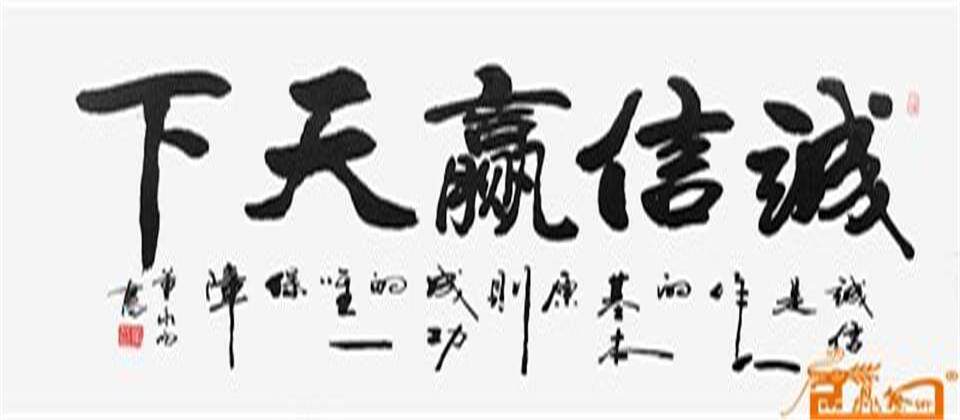 诚信赢天下
诚信是作人的基本原则成功的唯一保障